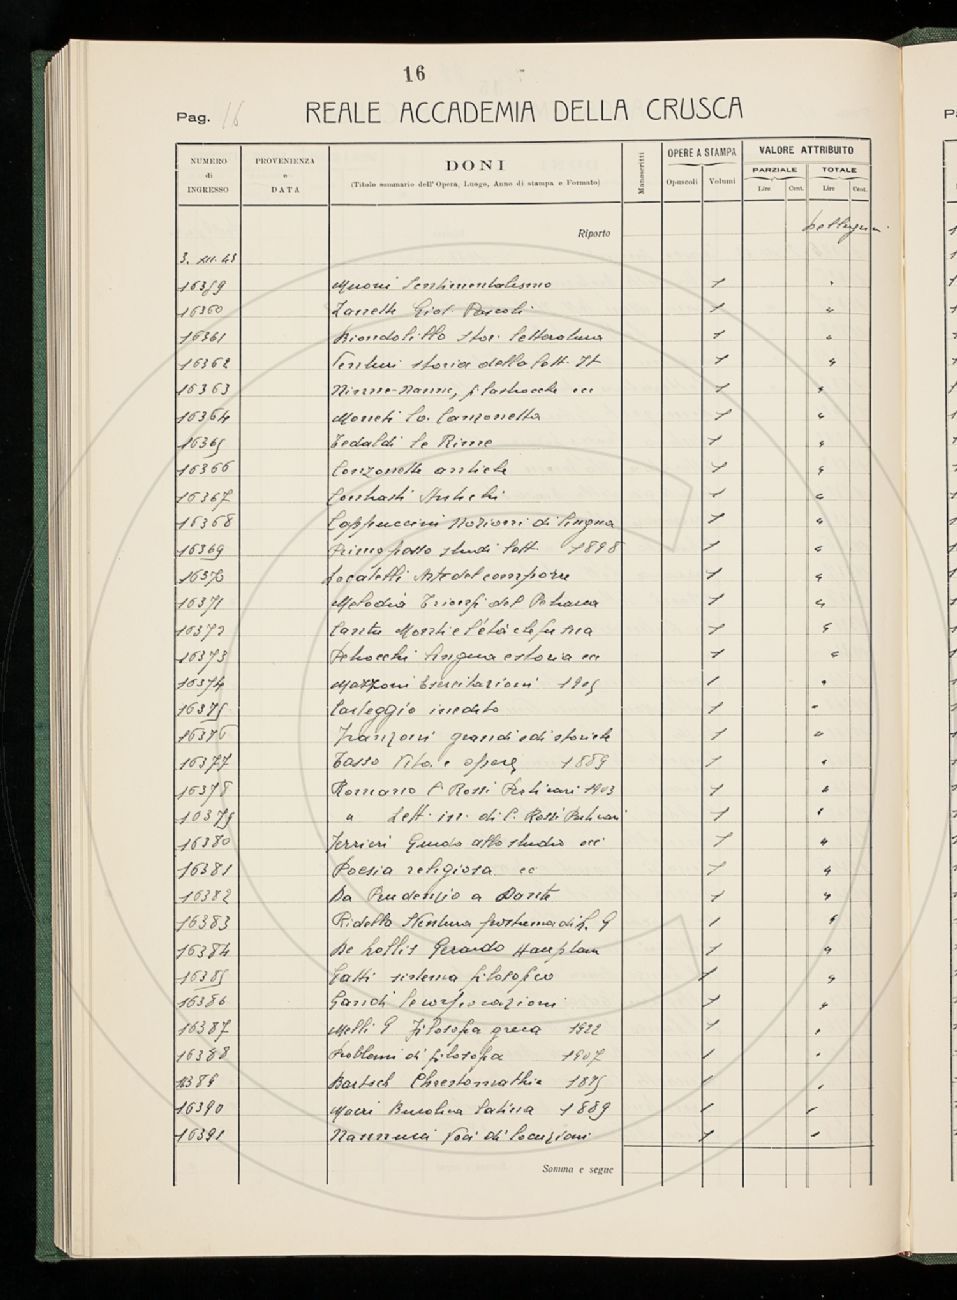 16
Pag. 16 REALE ACCADEMIA DELLA CRUSCA
NUMERO di INGRESSO PROVENIENZA e DATA DONI (Titolo sommario dell'Opera, Luogo, Anno di stampa e Formato) Manoscritti OPERE A STAMPA Opuscoli Volumi VALORE ATTRIBUITO PARZIALE Lire Cent. TOTALE Lire Cent.
Riporto
3. XII. 43
16359 Muoni Sentimentalismo 1
16360 Zanetti Giov. Pascoli 1 "
16361 Biondolillo Stor. letteratura 1 "
16362 Venturi storia della lett. It 1 "
16363 Ninne-Nanne, filastrocche ecc 1 "
16364 Moneti La Canzonetta 1 "
16365 Tedaldi Le Rime 1 "
16366 Canzonette antiche 1 "
16367 Contrasti Antichi 1 "
16368 Cappuccini Nozioni di lingua 1 "
16369 Primo passo studi lett. 1898 1 "
16370 Locatelli Arte del comporre 1 "
16371 Melodia Trionfi del Petrarca 1 "
16372 Cantù Monti e l'età che fu sua 1 "
16373 Petrocchi lingua e storia ecc 1 "
16374 Mazzoni Esercitazioni 1905 1 "
16375 Carteggio inedito 1 "
16376 Franzoni grandi edi storiche 1 "
16377 Tasso Vita e opere 1889 1 "
16378 Romano C Rossi Perticari 1903 1 "
16379 " Lett. in. di C. Rossi Perticari 1 "
16380 Ferrieri Guida allo studio ecc 1 "
16381 Poesia religiosa ec 1 "
16382 Da Prudenzio a Dante 1 "
16383 Ridella Sventura postuma di G. 1 "
16384 De Lollis Gerardo Hauptman 1 "
16385 Gatti sistema filosofico 1 "
16386 1 "
16387 Melli G Filosofia greca 1922 1 "
16388 Problemi di filosofia 1907 1 "
16389 Bartsch Chrestomathie 1875 1 "
16390 Macrì Bucolica latina 1889 1 "
16391 Nannucci Voci di locuzioni 1 "
Somma e segue